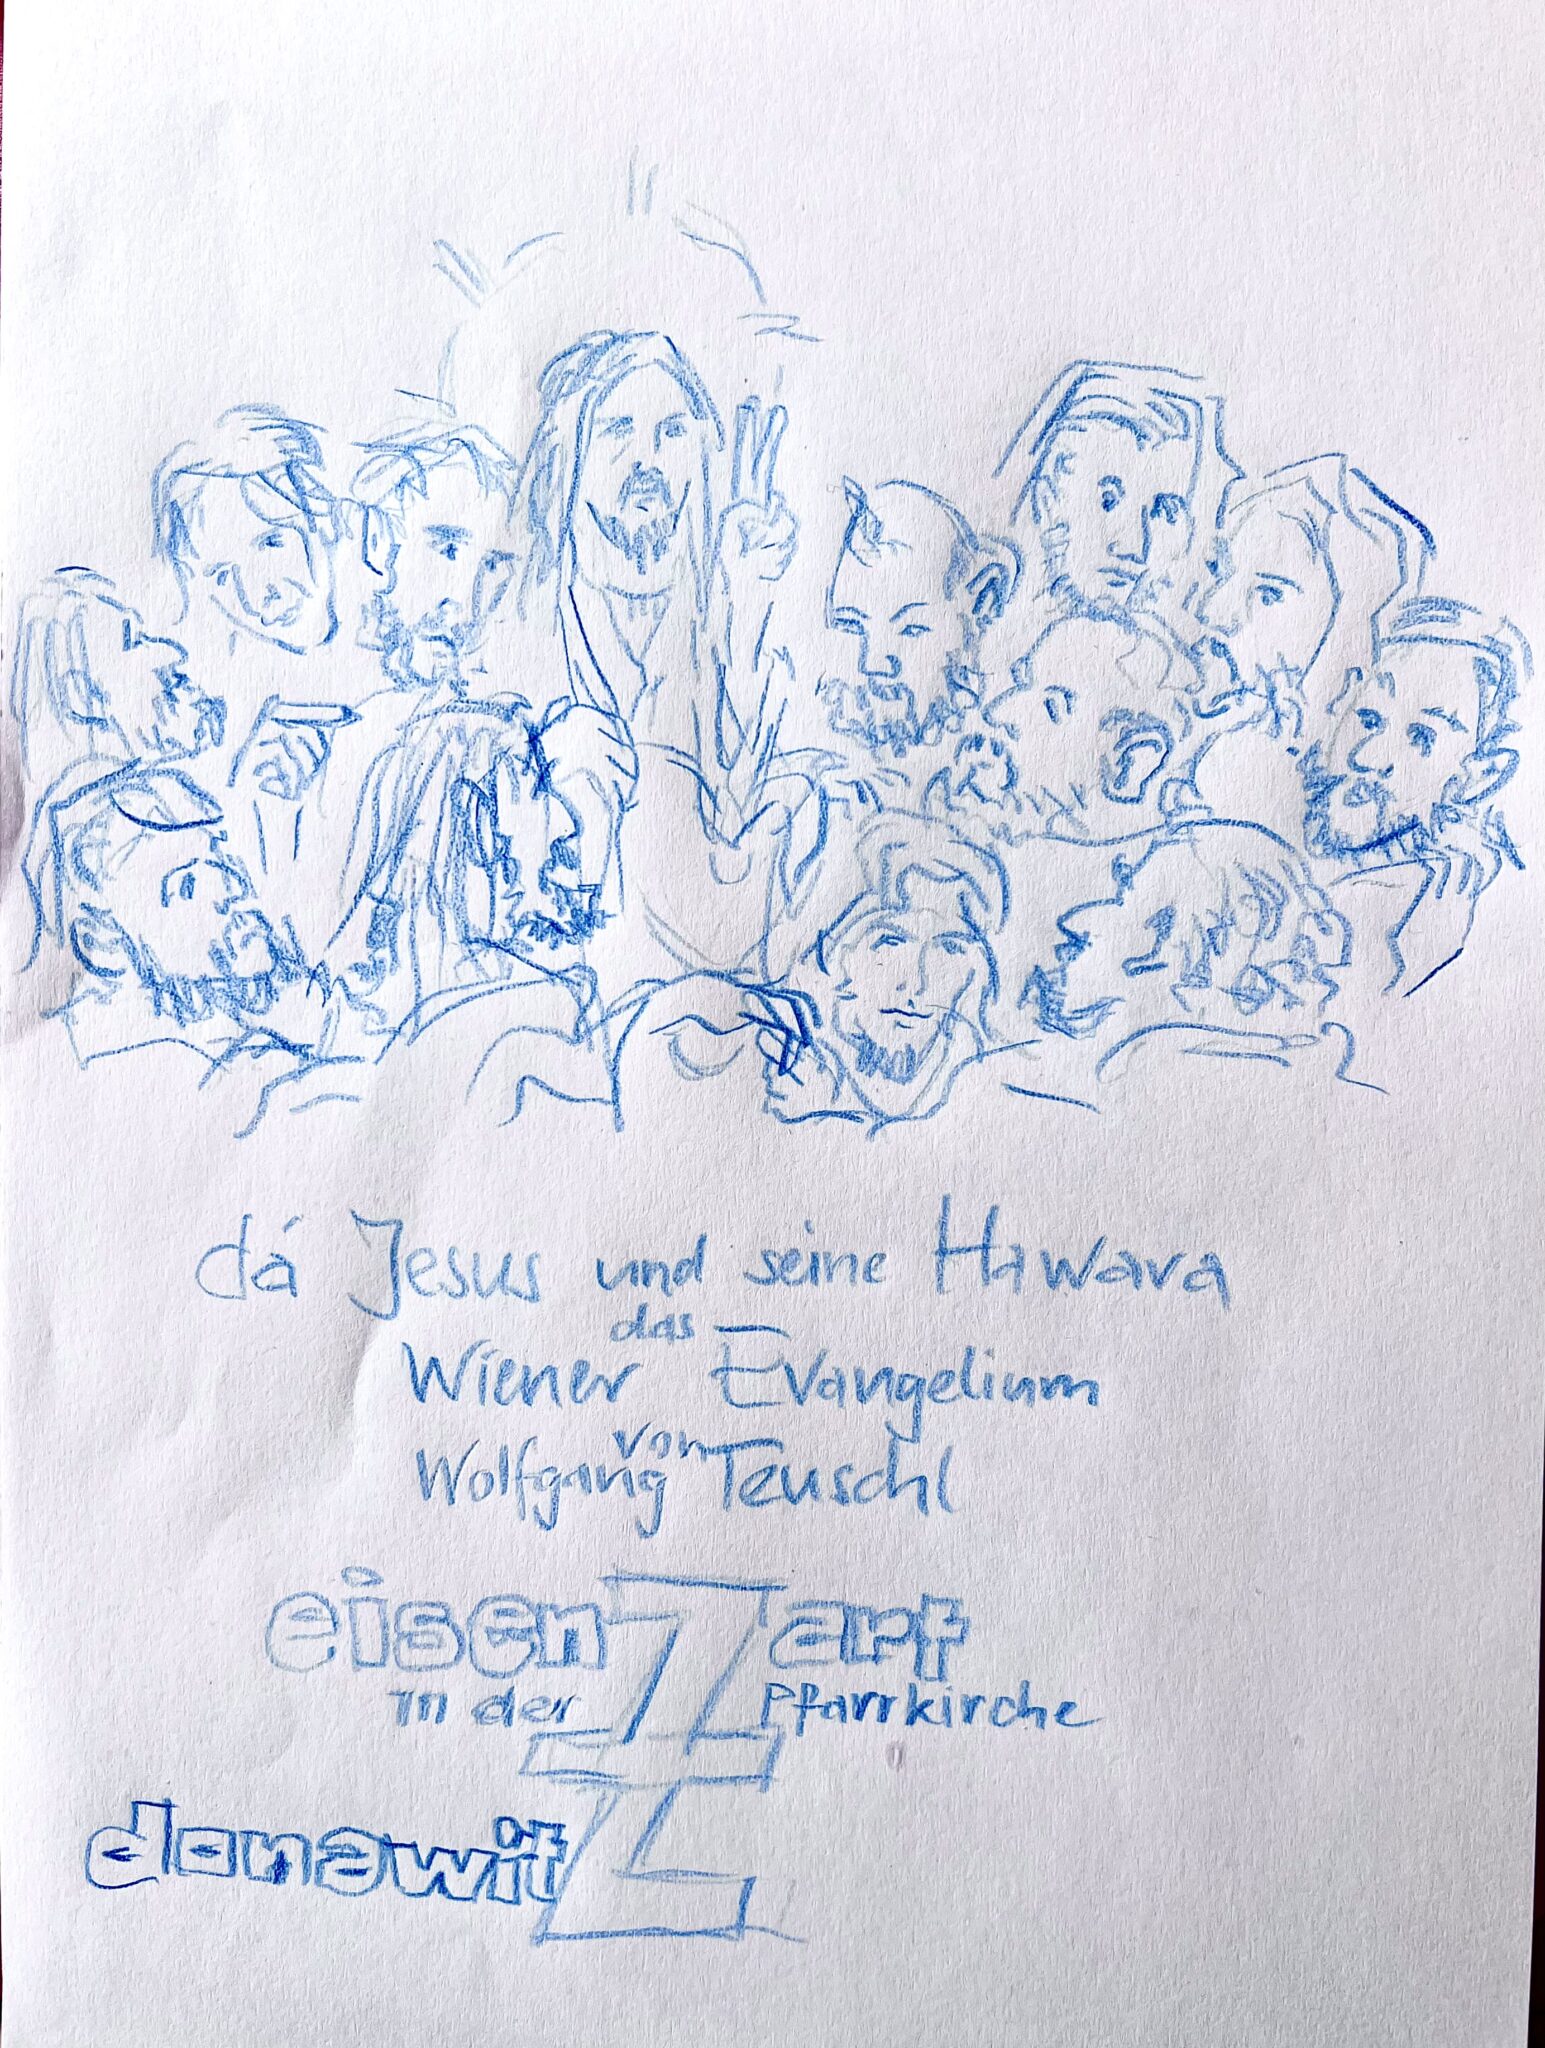 dá Jesus und seine Hawara
das
Wiener Evangelium
von
Wolfgang Teuschl
eisenZart
in der Pfarrkirche
donawitZ